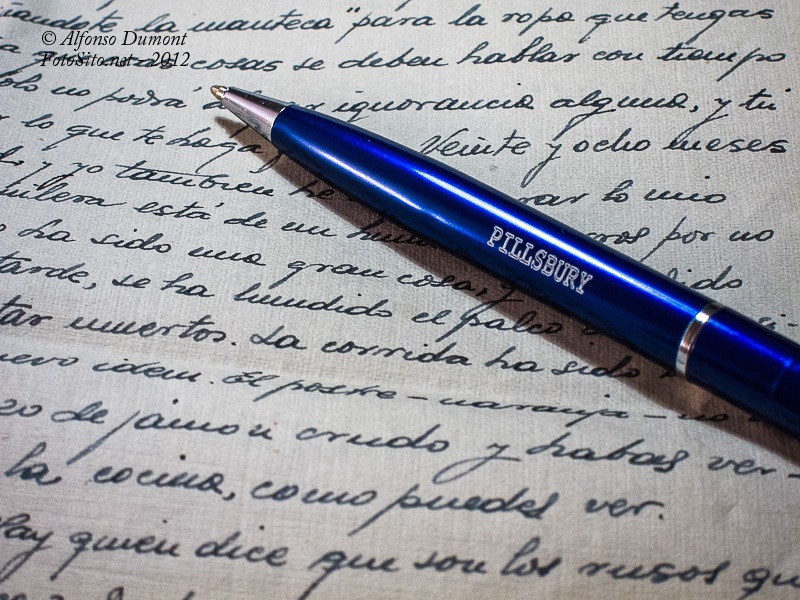 © Alfonso Dumont
FotoSito.net - 2012
la manteca" para la ropa que tengas
cosas se deben hablar con tiempo
no podrá ignorancia alguna, y tú
lo que te haga Veinte y ocho meses
y yo también he lo mio
está de un por no
ha sido una gran cosa,
tarde, se ha hundido el palco
muertos. La corrida ha sido
idem. El postre - naranja - no
de jamon crudo y habas ver-
la cocina, como puedes ver.
Hay quien dice que son los rusos que
PILLSBURY